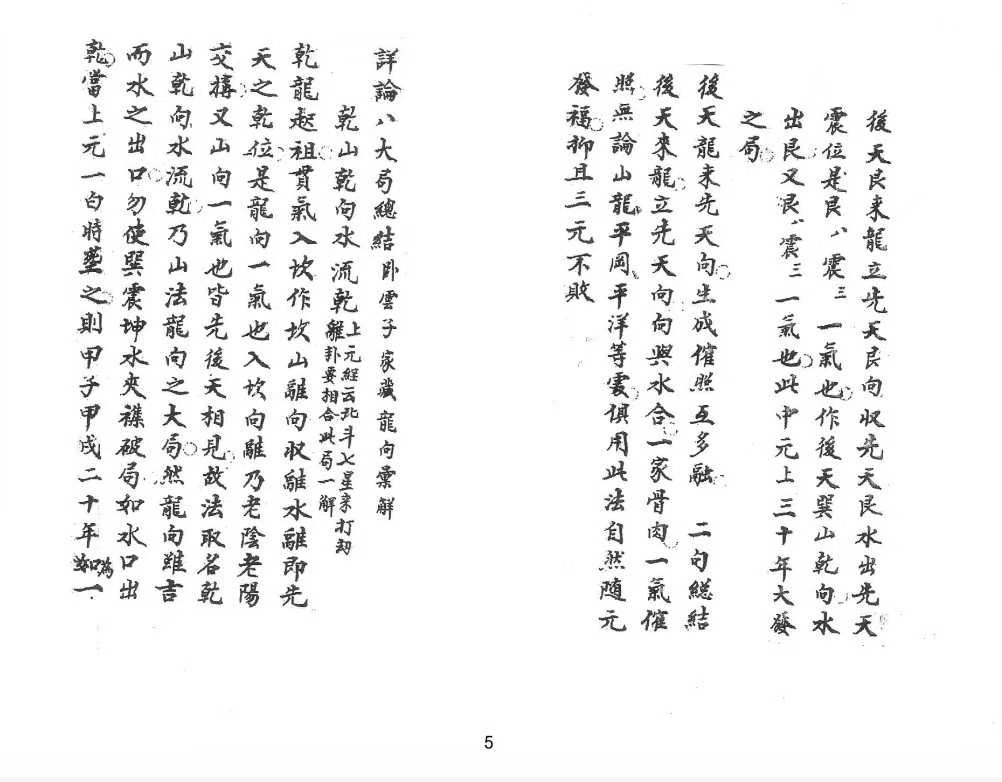 後天艮來龍立先天艮向收先天艮水出先天
震位是艮八震三一氣也作後天巽山乾向水
出艮又艮八震三一氣也此中元上三十年大發
之局
後天龍來先天向生成催照互多融　二句總結
後天來龍立先天向向與水合一家骨肉一氣催
照無論山龍平岡平洋等處俱用此法自然隨元
發福抑且三元不敗
詳論八大局總結卧雲子家藏龍向彙解
乾山乾向水流乾上元經云北斗七星來打劫
離卦要相合此局一解
乾龍起祖貫氣入坎作坎山離向收離水離即先
天之乾位是龍向一氣也入坎向離乃老陰老陽
交搆又山向一氣也皆先後天相見故法取名乾
山乾向水流乾乃山法龍向之大局然龍向雖吉
而水之出口勿使巽震坤水夾襍破局如水口出
乾當上元一白時塟之則甲子甲戌二十年如一
5